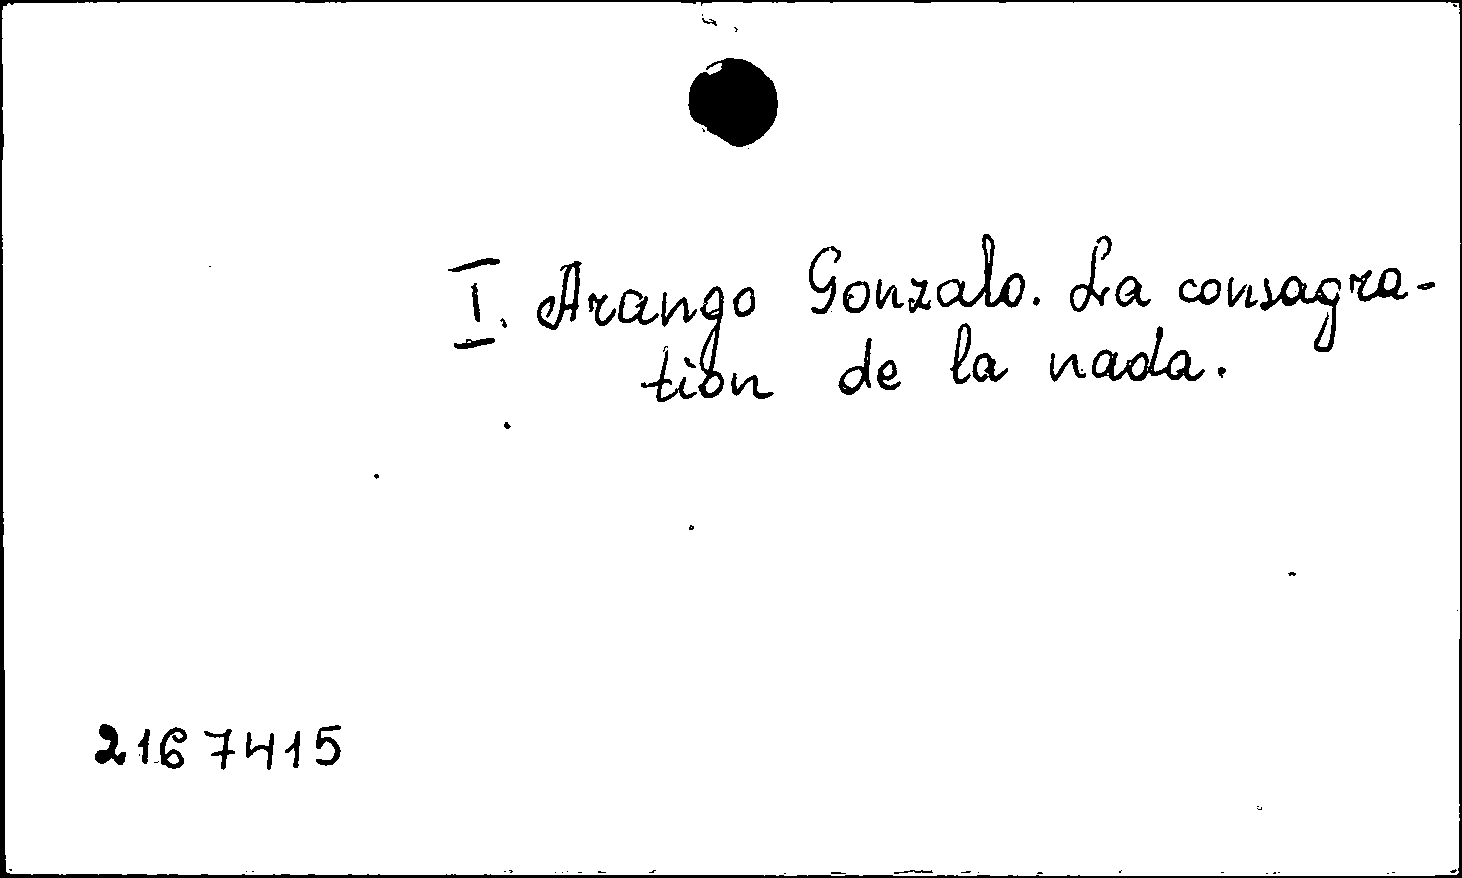 I. Arango Gonzalo. La consagra-
tion de la nada.
2167415